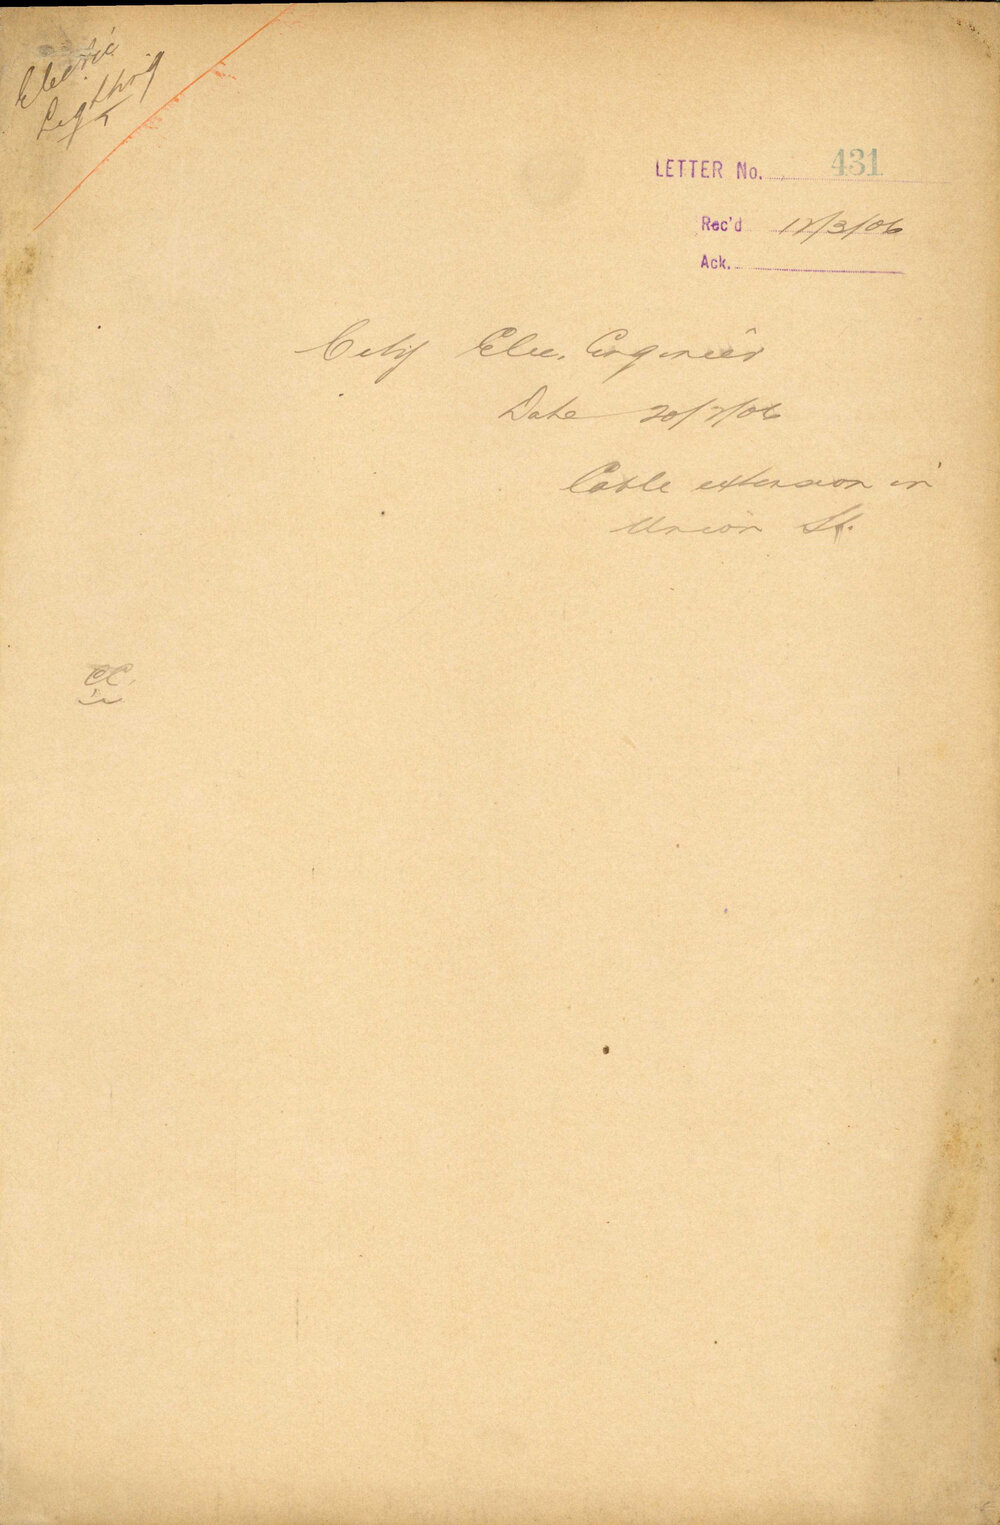 Electric
Lighting
LETTER No. 431
Rec'd 12/3/06
Ack.
City Elec. Engineer
Date 20/2/06
Cable extension in
Union St.